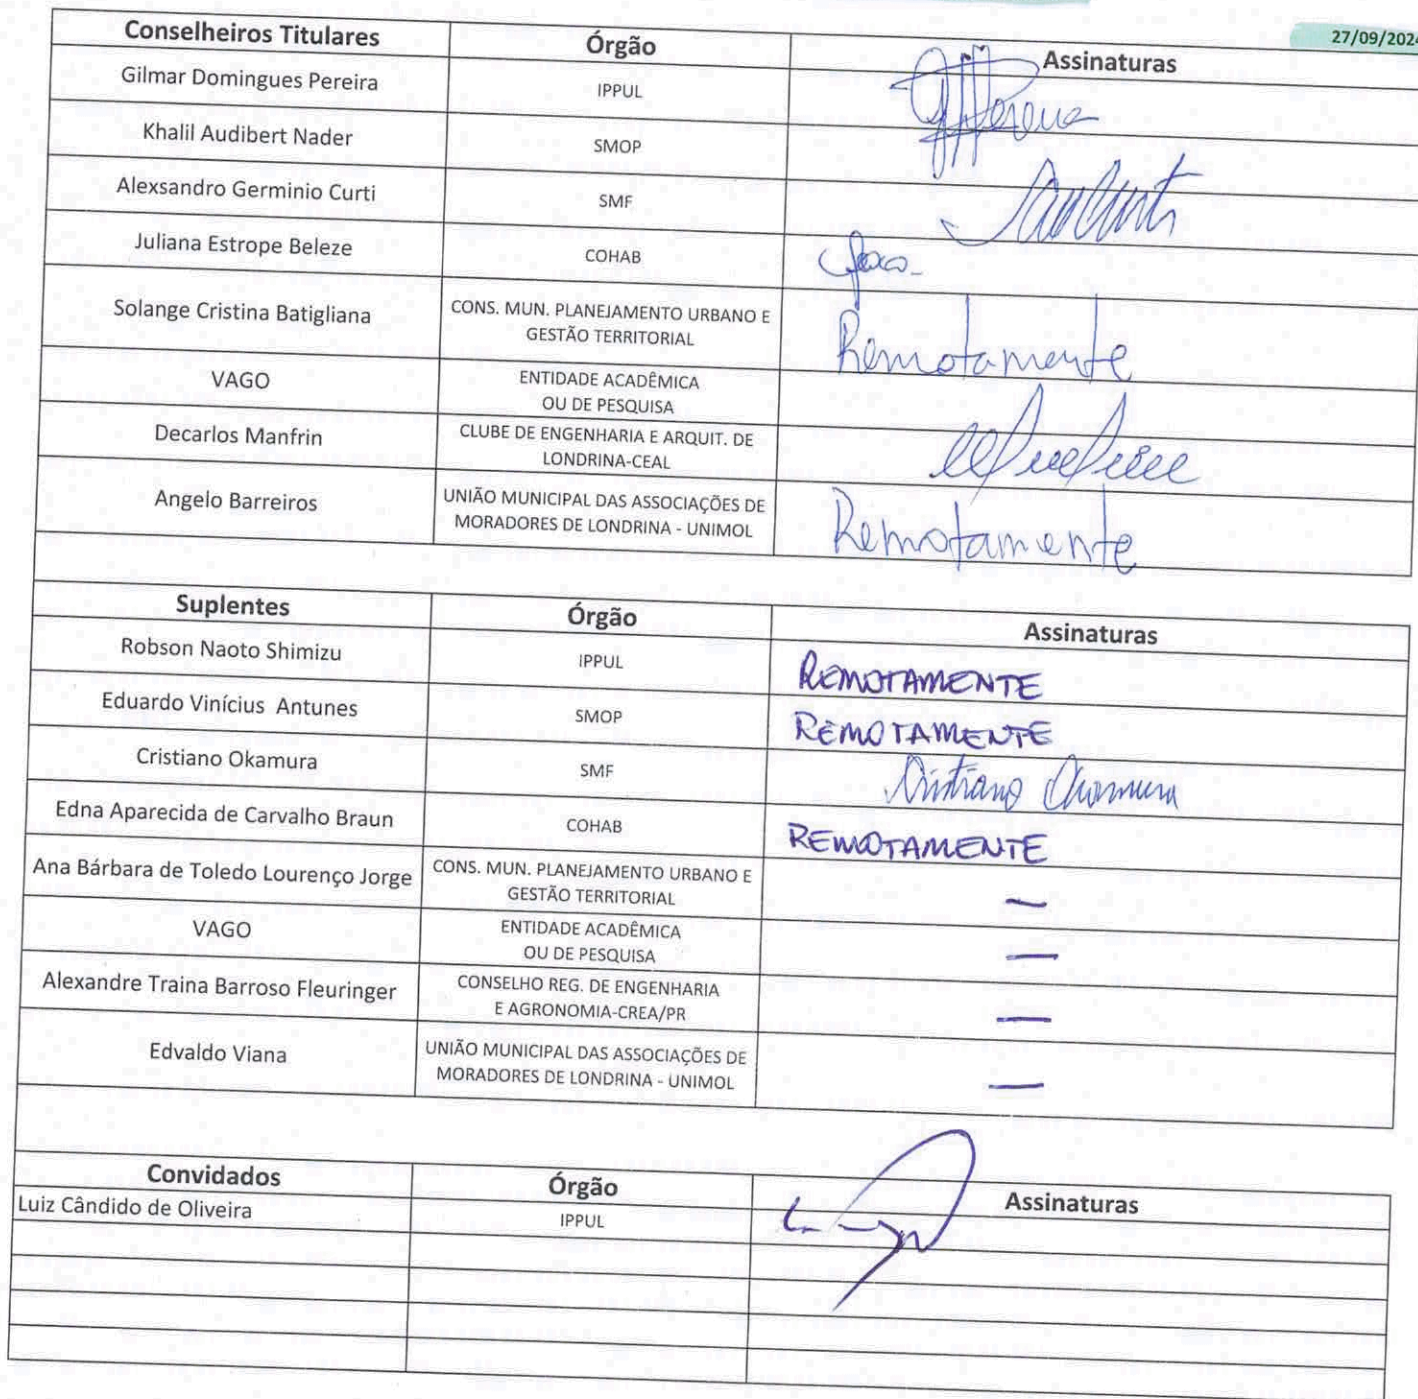 27/09/2024
Conselheiros Titulares Órgão Assinaturas
Gilmar Domingues Pereira IPPUL
Khalil Audibert Nader SMOP
Alexsandro Germinio Curti SMF
Juliana Estrope Beleze COHAB
Solange Cristina Batigliana CONS. MUN. PLANEJAMENTO URBANO E
GESTÃO TERRITORIAL Remotamente
VAGO ENTIDADE ACADÊMICA
OU DE PESQUISA
Decarlos Manfrin CLUBE DE ENGENHARIA E ARQUIT. DE
LONDRINA-CEAL
Angelo Barreiros UNIÃO MUNICIPAL DAS ASSOCIAÇÕES DE
MORADORES DE LONDRINA - UNIMOL Remotamente
Suplentes Órgão Assinaturas
Robson Naoto Shimizu IPPUL REMOTAMENTE
Eduardo Vinícius Antunes SMOP REMOTAMENTE
Cristiano Okamura SMF Cristiano Okamura
Edna Aparecida de Carvalho Braun COHAB REMOTAMENTE
Ana Bárbara de Toledo Lourenço Jorge CONS. MUN. PLANEJAMENTO URBANO E
GESTÃO TERRITORIAL —
VAGO ENTIDADE ACADÊMICA
OU DE PESQUISA —
Alexandre Traina Barroso Fleuringer CONSELHO REG. DE ENGENHARIA
E AGRONOMIA-CREA/PR —
Edvaldo Viana UNIÃO MUNICIPAL DAS ASSOCIAÇÕES DE
MORADORES DE LONDRINA - UNIMOL —
Convidados Órgão Assinaturas
Luiz Cândido de Oliveira IPPUL